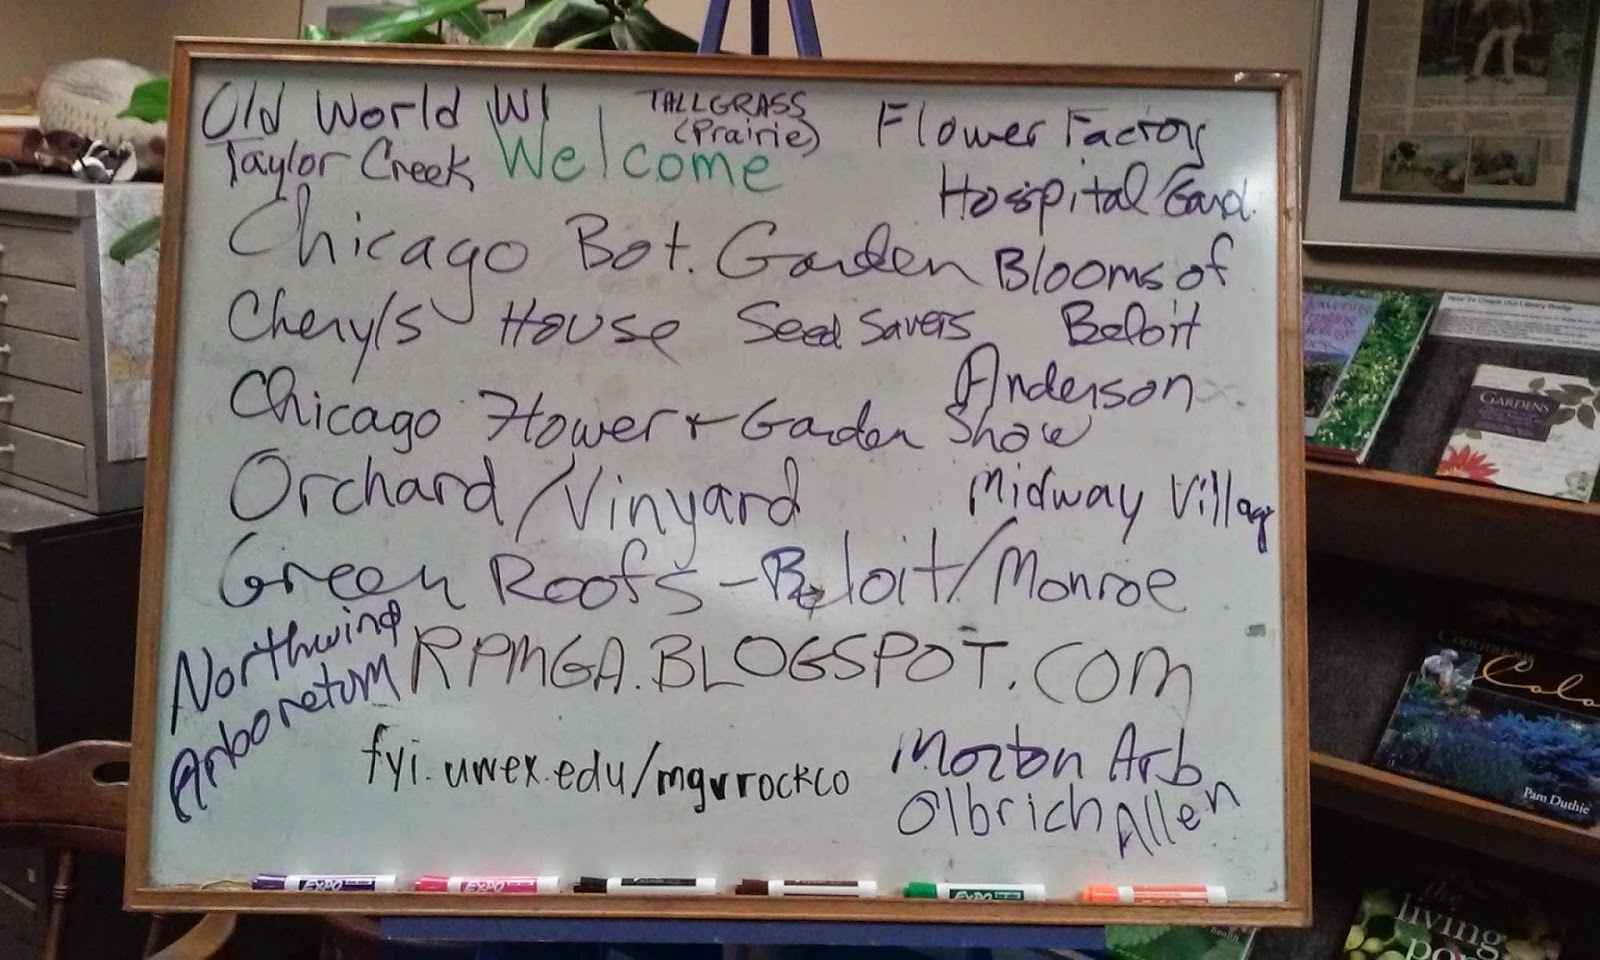 Old World WI
TALLGRASS
(Prairie)
Flower Factory
Taylor Creek
Welcome
Hospital Gard.
Chicago Bot. Garden
Blooms of
Beloit
Cheryls House
Seed Savers
Anderson
Chicago Flower + Garden Show
Orchard/Vinyard
Midway Village
Green Roofs - Beloit/Monroe
Northwind
Arboretum
RPMGA.BLOGSPOT.COM
fyi.uwex.edu/mgvrockco
Morton Arb
Olbrich
Allen
EXPO
EXPO
EXPO
GARDENS
Pam Duthie
the
living